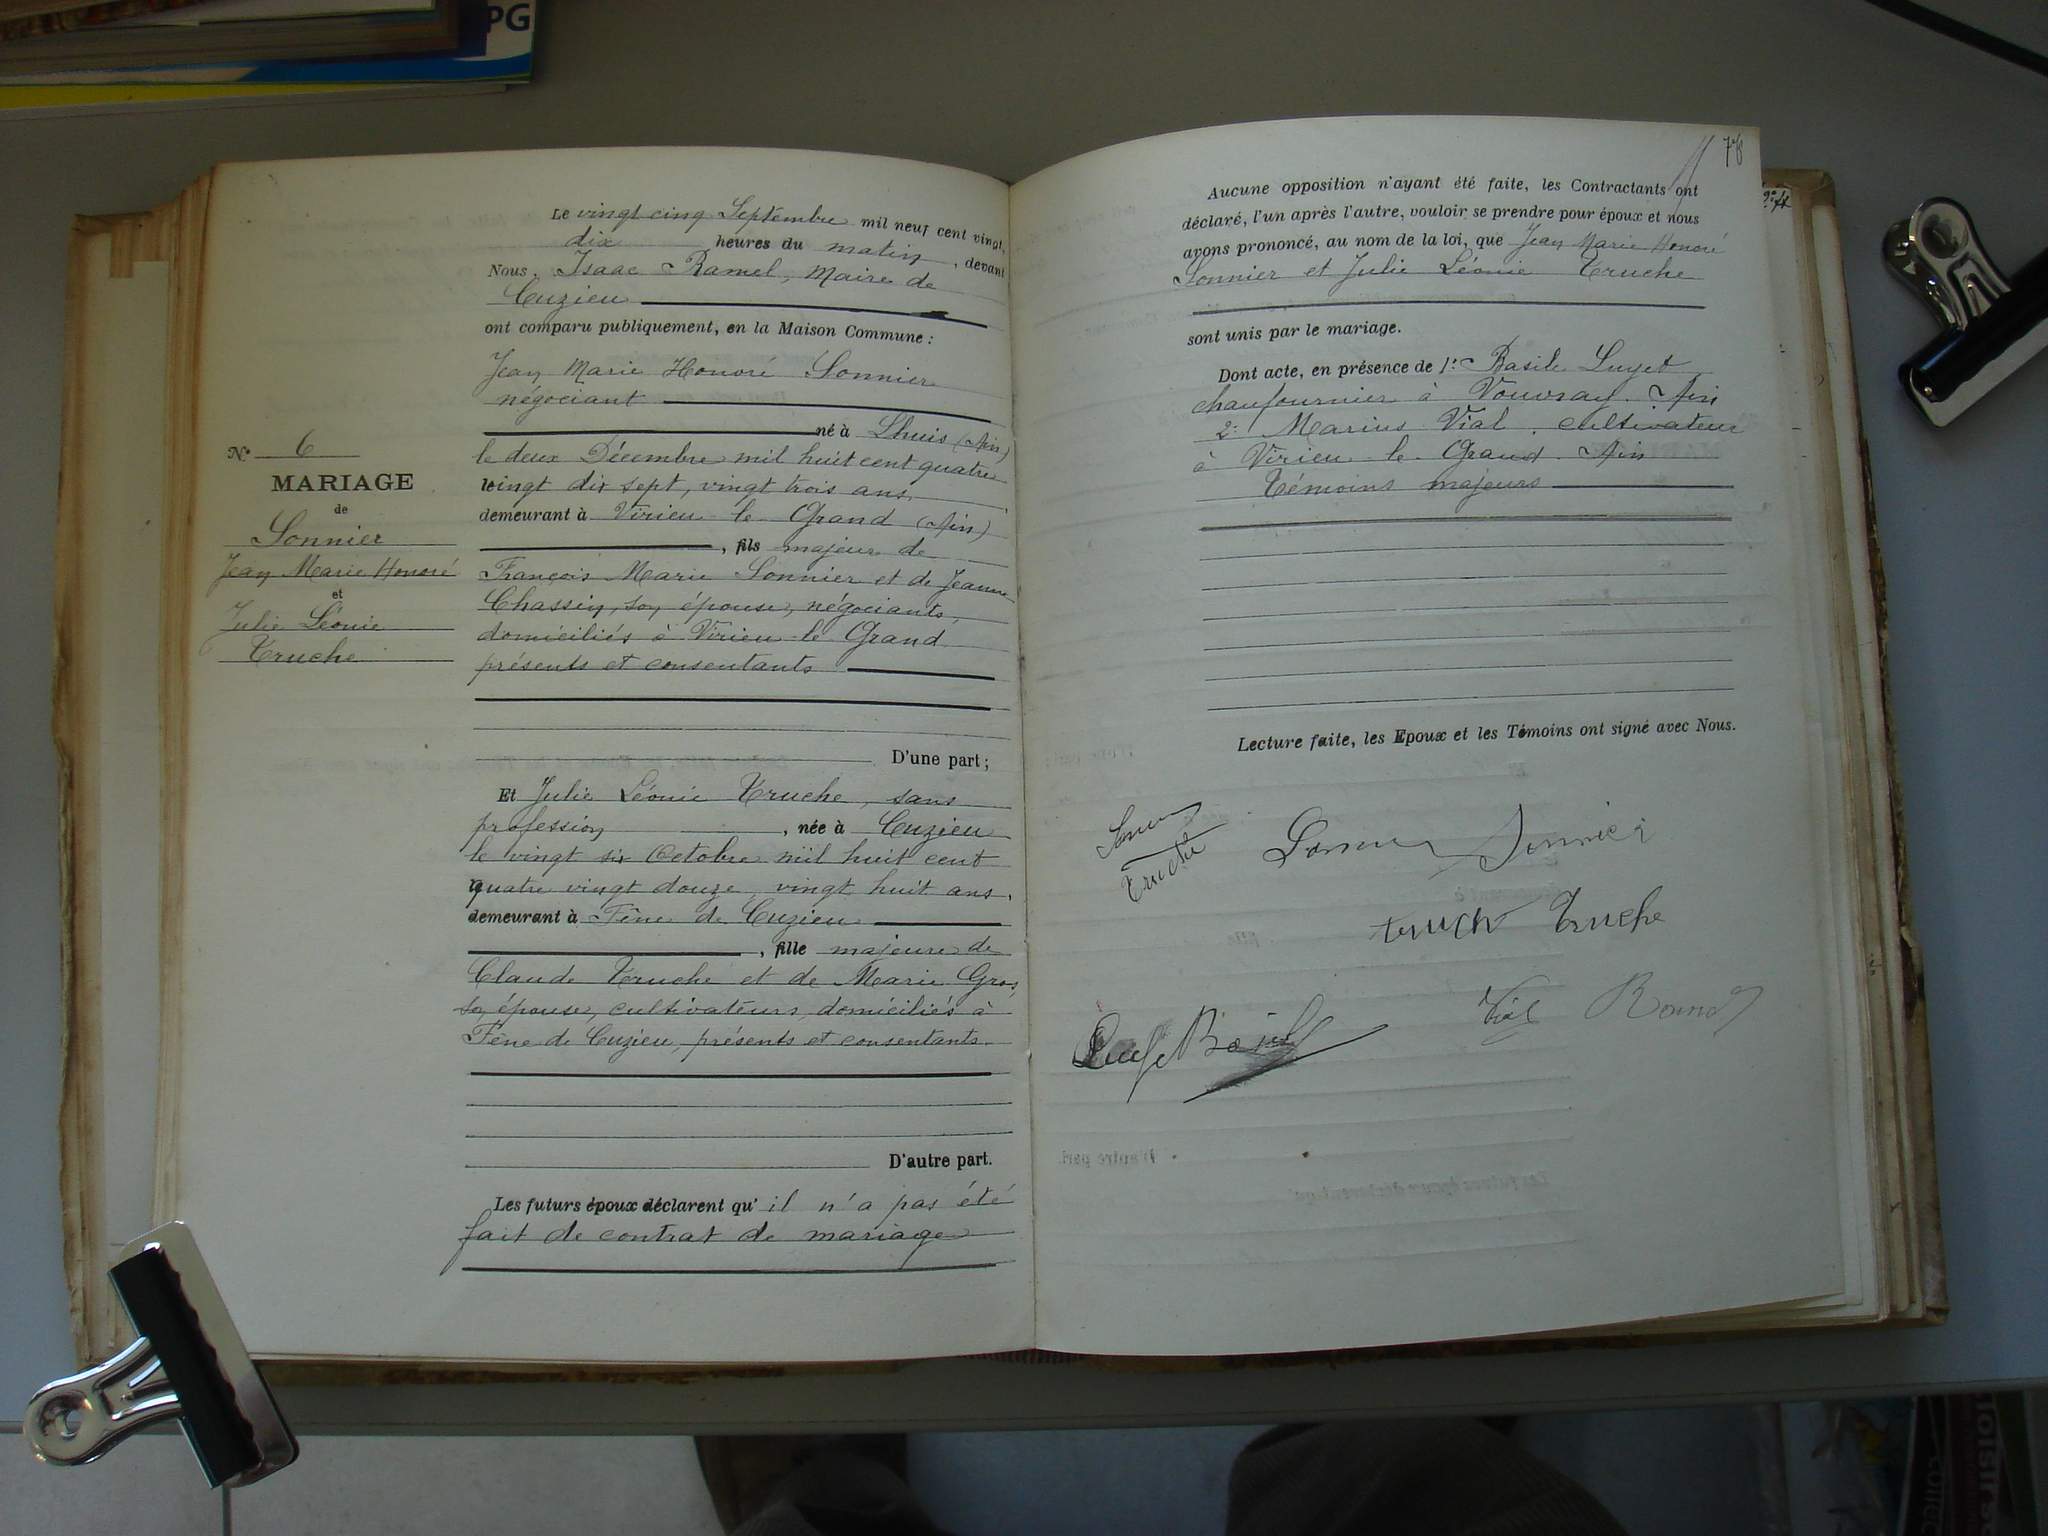 PG
N° 6
MARIAGE
de
Sonnier
Jean Marie Honoré
et
Julie Léonie
Truche
Le vingt cinq Septembre mil neuf cent vingt,
dix heures du matin, devant
Nous, Isaac Ramel, Maire de
Cuzieu
ont comparu publiquement, en la Maison Commune :
Jean Marie Honoré Sonnier
négociant
né à Lhuis (Ain)
le deux Décembre mil huit cent quatre
vingt dix sept, vingt trois ans,
demeurant à Virieu-le-Grand (Ain)
, fils majeur de
François Marie Sonnier et de Jeanne
Chassin, son épouse, négociants,
domiciliés à Virieu-le-Grand
présents et consentants
D'une part ;
Et Julie Léonie Truche, sans
profession, née à Cuzieu
le vingt six Octobre mil huit cent
quatre vingt douze, vingt huit ans,
demeurant à Fêne de Cuzieu
, fille majeure de
Claude Truche et de Marie Gros,
son épouse, cultivateurs, domiciliés à
Fêne de Cuzieu, présents et consentants.
D'autre part.
Les futurs époux déclarent qu'il n'a pas été
fait de contrat de mariage
Aucune opposition n'ayant été faite, les Contractants ont
déclaré, l'un après l'autre, vouloir se prendre pour époux et nous
avons prononcé, au nom de la loi, que Jean Marie Honoré
Sonnier et Julie Léonie Truche
sont unis par le mariage.
Dont acte, en présence de 1° Basile Luyet
chaufournier à Vouvray. Ain
2° Marius Vial, cultivateur
à Virieu-le-Grand. Ain
Témoins majeurs
Lecture faite, les Epoux et les Témoins ont signé avec Nous.
Sonnier
Truche
Truche
Vial